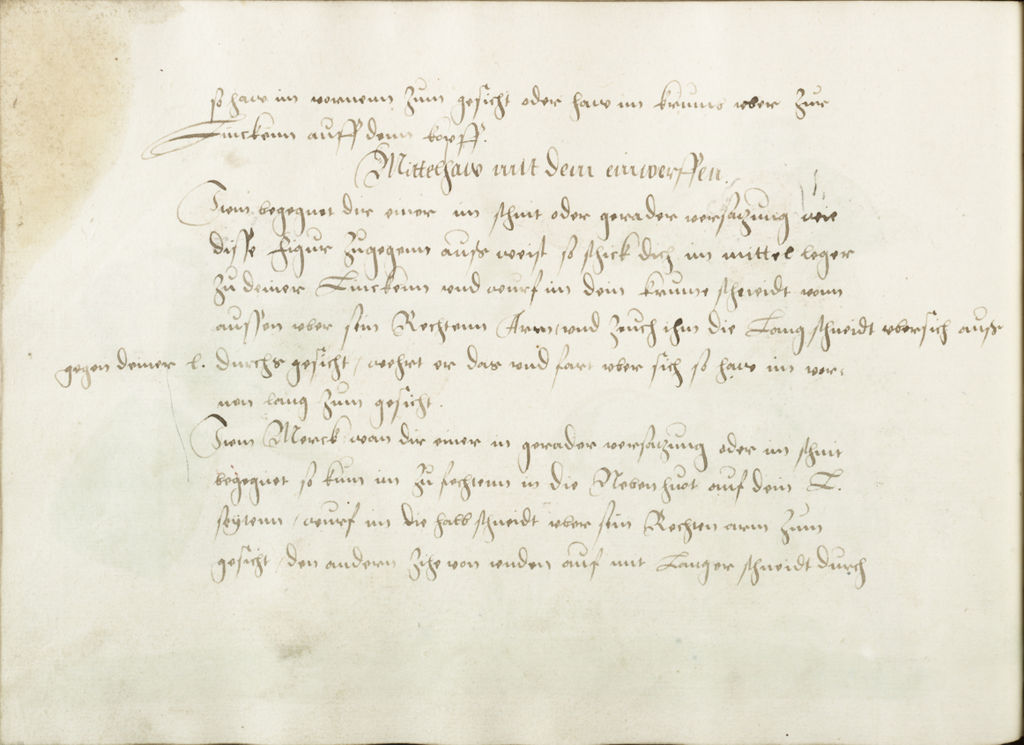 so haw im vornenn zum gesicht oder haw im krums uber zur
Linckenn auff denn kopff.
Mittelhaw mit dem einwerffen.
Item begegnet dir einer im schnit oder gerader versatzung wie
disse figur zugegenn aufs weist so schick dich im mittel leger
zu deiner Linckenn und wurf im dein krume schneidt vonn
aussen uber sein Rechtenn Arm, und zeuch ihm die Lang schneidt ubersich aufs
gegen deiner l. durchs gesicht, wehrt er das und fart uber sich so haw im vor-
nen lang zum gesicht.
Item Merck wan dir einer in gerader versatzung oder im schnit
begegnet so kum im zu fechtenn in die Nebenhuot auf dein L.
seytenn, wurf im die halb schneidt uber sein Rechten arm zum
gesicht, den andern zihe von unden auf mit Langer schneidt durch